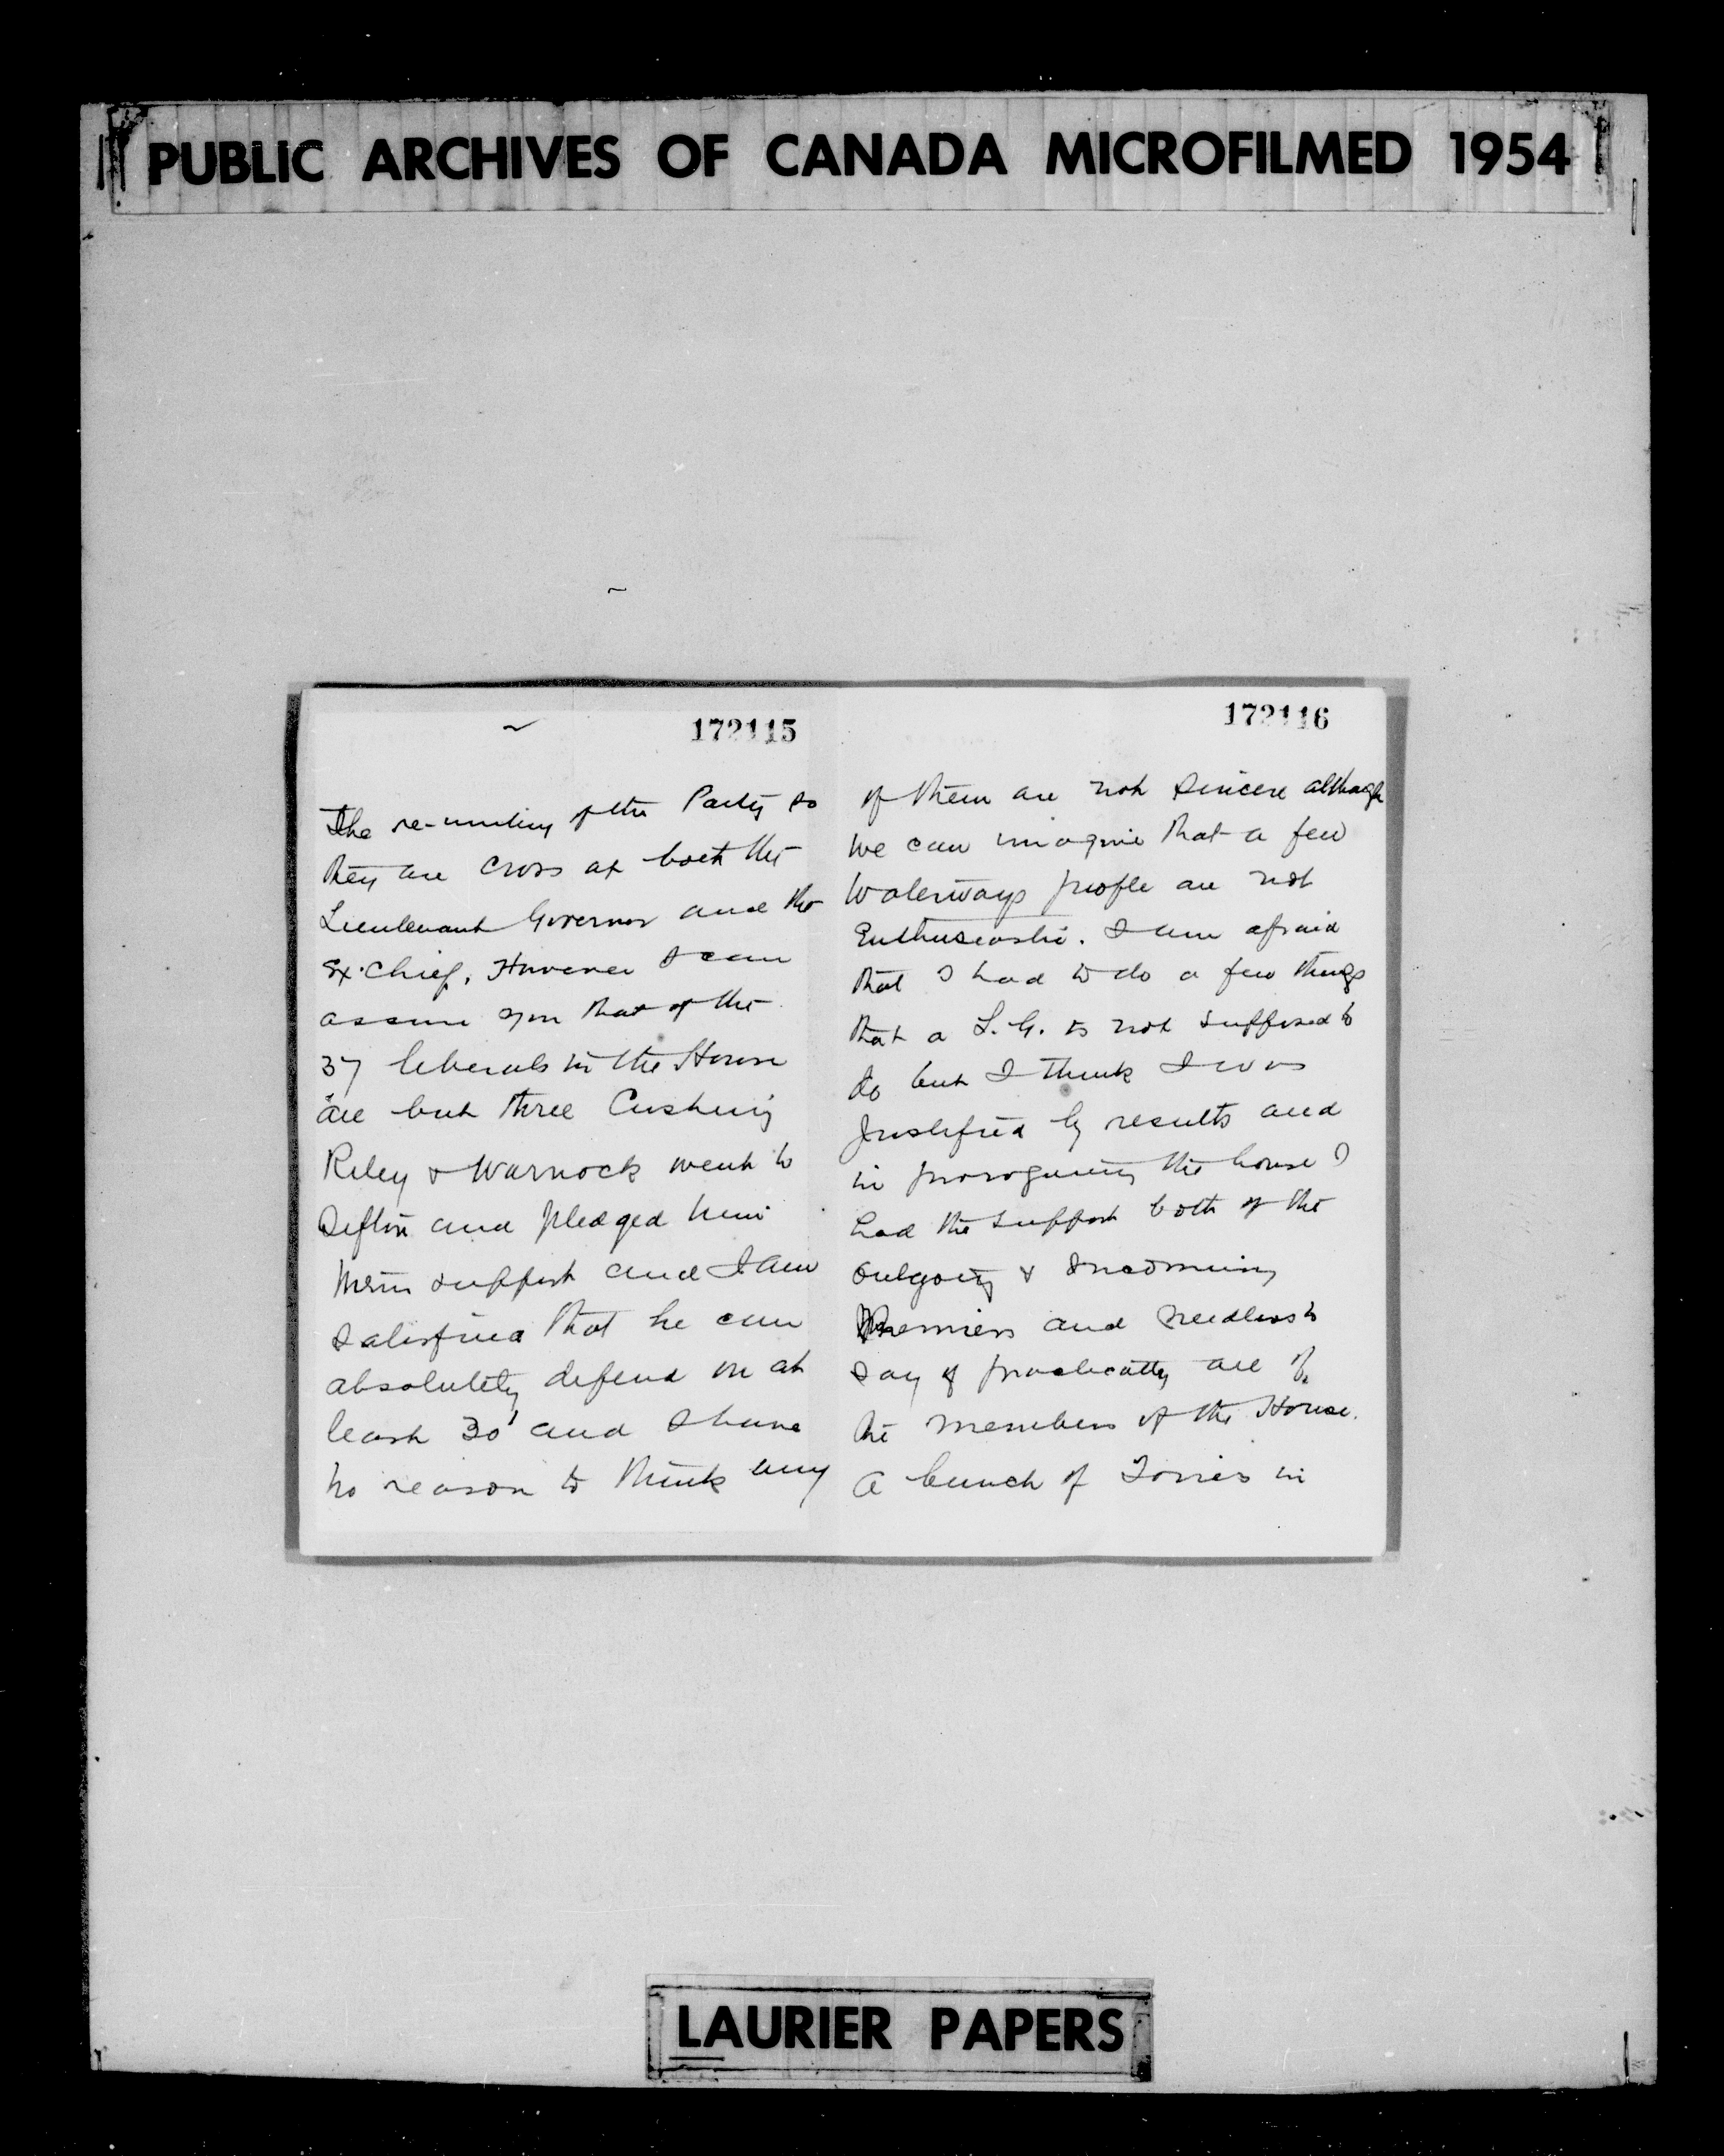 PUBLIC ARCHIVES OF CANADA MICROFILMED 1954
172115
The re-uniting of the Party so
they are cross at both the
Lieutenant Governor and the
Ex-Chief. However I can
assure you that of the
37 liberals in the House
all but three Cushing
Riley & Warnock went to
Sifton and pledged him
their support and I am
satisfied that he can
absolutely depend on at
least 30 and I have
no reason to think any
172116
of them are not sincere although
we can imagine that a few
Waterways people are not
Enthusiastic. I am afraid
that I had to do a few things
that a L.G. is not supposed to
do but I think I was
justified by results and
in proroguing the house I
had the support both of the
outgoing & Incoming
Premiers and needless to
say of practically all of
the members of the House.
A bunch of Tories in
LAURIER PAPERS